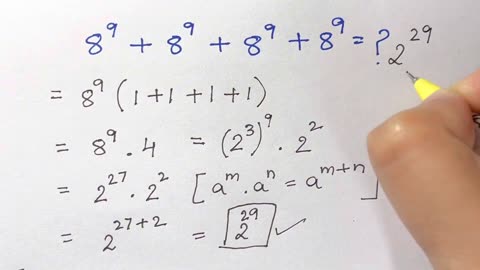 8⁹ + 8⁹ + 8⁹ + 8⁹ = ? 2²⁹
= 8⁹ (1+1+1+1)
= 8⁹ . 4 = (2³)⁹ . 2²
= 2²⁷ . 2² [aᵐ . aⁿ = aᵐ⁺ⁿ]
= 2²⁷⁺² = 2²⁹ ✓